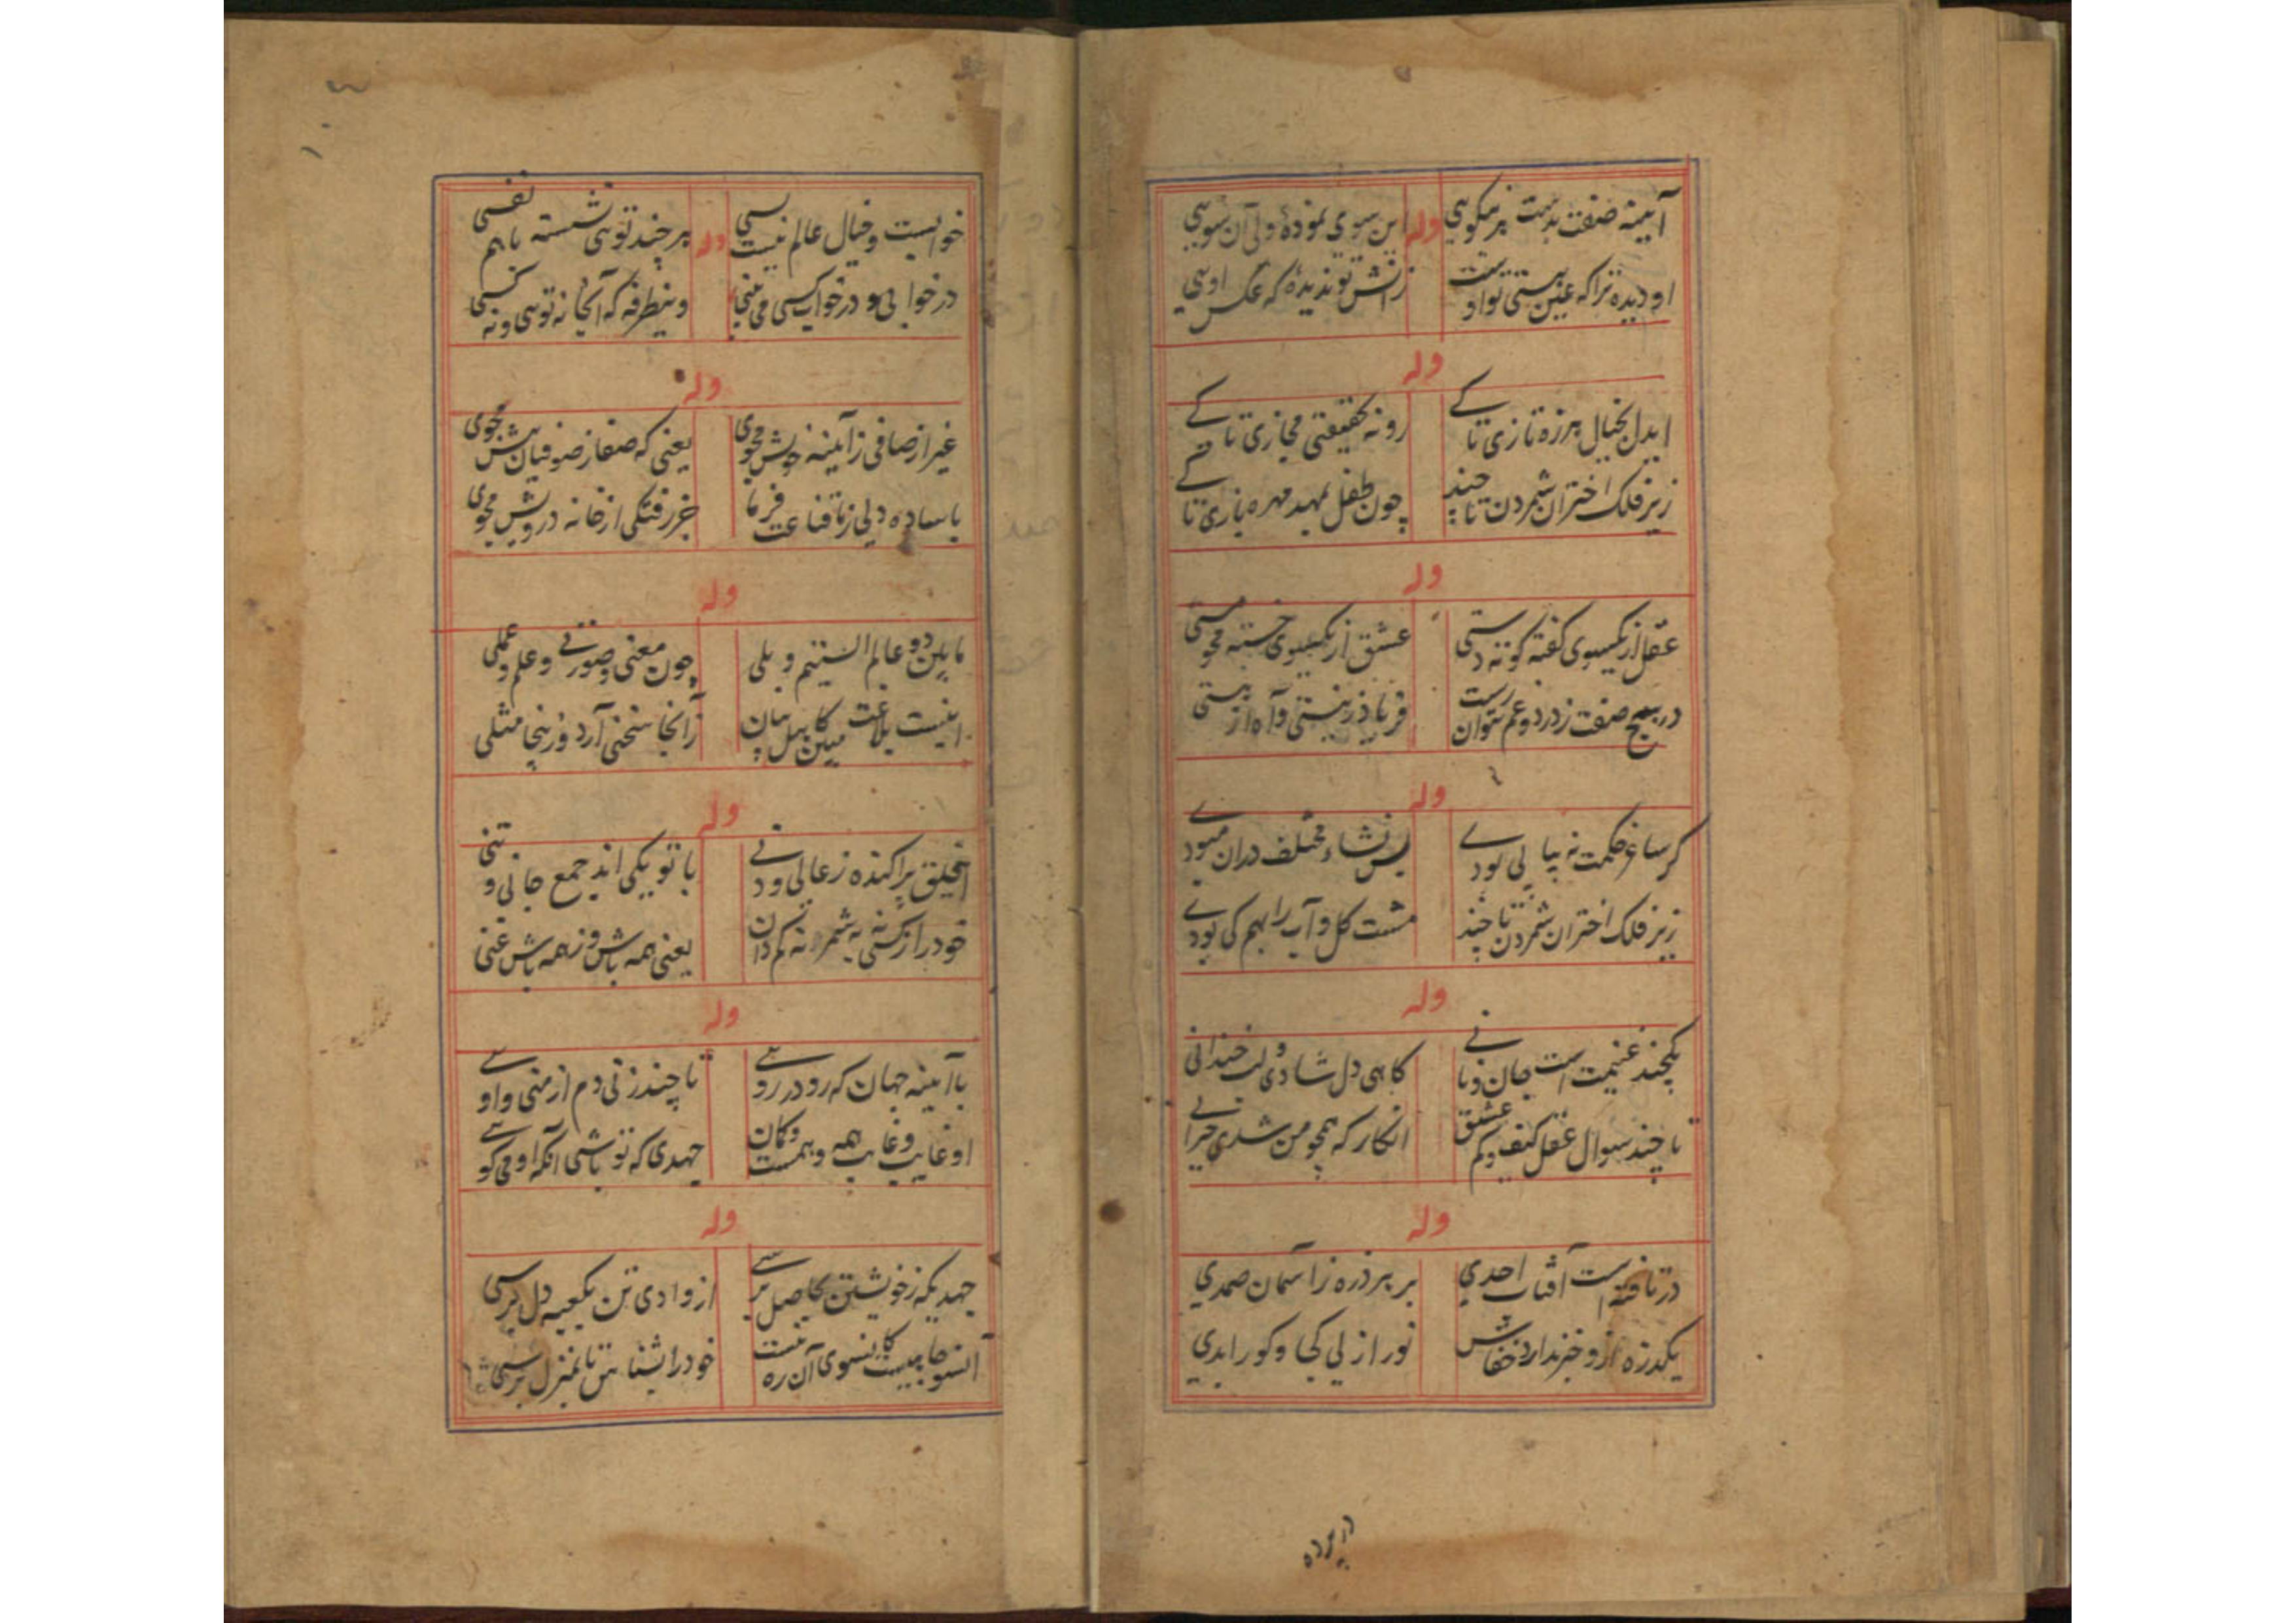 آئینه صفت بدست هر نیکویی
وله
این سوی نمودهٔ ولی آن سویی
او دیده ترا که عین هستی تو اوست
زانش تو ندیدهٔ که عکس اویی
وله
ایدل بخیال هرزه تازی تا کے
رو نه بحقیقتی مجازی تا کے
زیر فلک اختران شمردن تا چند
چون طفل بمهد مهره بازی تا کے
وله
عقل از یکسوی گفته کوته دستی
عشق از یکسوی خسته محو مستی
در هیچ صفت ز درد و غم نتوان رست
فریاد ز نیستی و آه از هستی
وله
گر ساغر حکمت نه پیاپی بودے
بس نشاء مختلف دران می بودے
زیر فلک اختران شمردن تا چند
مشت گل و آب را بهم کی بودے
وله
یکچند غنیمت است جان و نانے
گاهی دل شادی و لب خندانی
تا چند سوال عقل کیف و کم عشق
انکار که همچو من شدی حیرانے
وله
در تافته است آفتاب احدی
بر هر ذره ز آسمان صمدی
یکذره ازو خبر ندارد خفاش
نور ازلی کجا و کور ابدی
در پرده
۱۰۴
خوابیست و خیال عالم نیست بسی
وله
هر چند توئی نشسته با هم نفسی
در خوابی و در خواب کسی می بینی
وینطرفه که آنجا نه توئی و نه کسی
وله
غیر از صافی ز آئینه خویش مجوی
یعنی که صفا ز صوفیان بیش مجوی
با ساده دلی ز ما قناعت فرما
جز رفتگی از خانه درویش مجوی
وله
ما بین دو عالم الستیم و بلی
چون معنی و صورتے و علم و عملی
اینست بلاغت مبین کامل بیان
زانجا سخنی آرد و زینجا مثلی
وله
ایخلق پراکنده ز عالی و دنے
با تو یکی اند جمع جانی و تنی
خود را ز کسی نه به شمر نه کم دان
یعنی همه باش و ز همه باش غنی
وله
با آئینه جهان که رو در روئے
تا چند زنی دم از منی و اوئے
او غایب و غایب همه وهمست و گمان
جهدی که تو باشی آنکه او می گوئے
وله
جهدیکه ز خویشتن بحاصل برسے
از وادی تن بکعبه دل برسی
آنسو جا نیست کاینسوی آن ره نیست
خود را بشناس تا بمنزل برسی